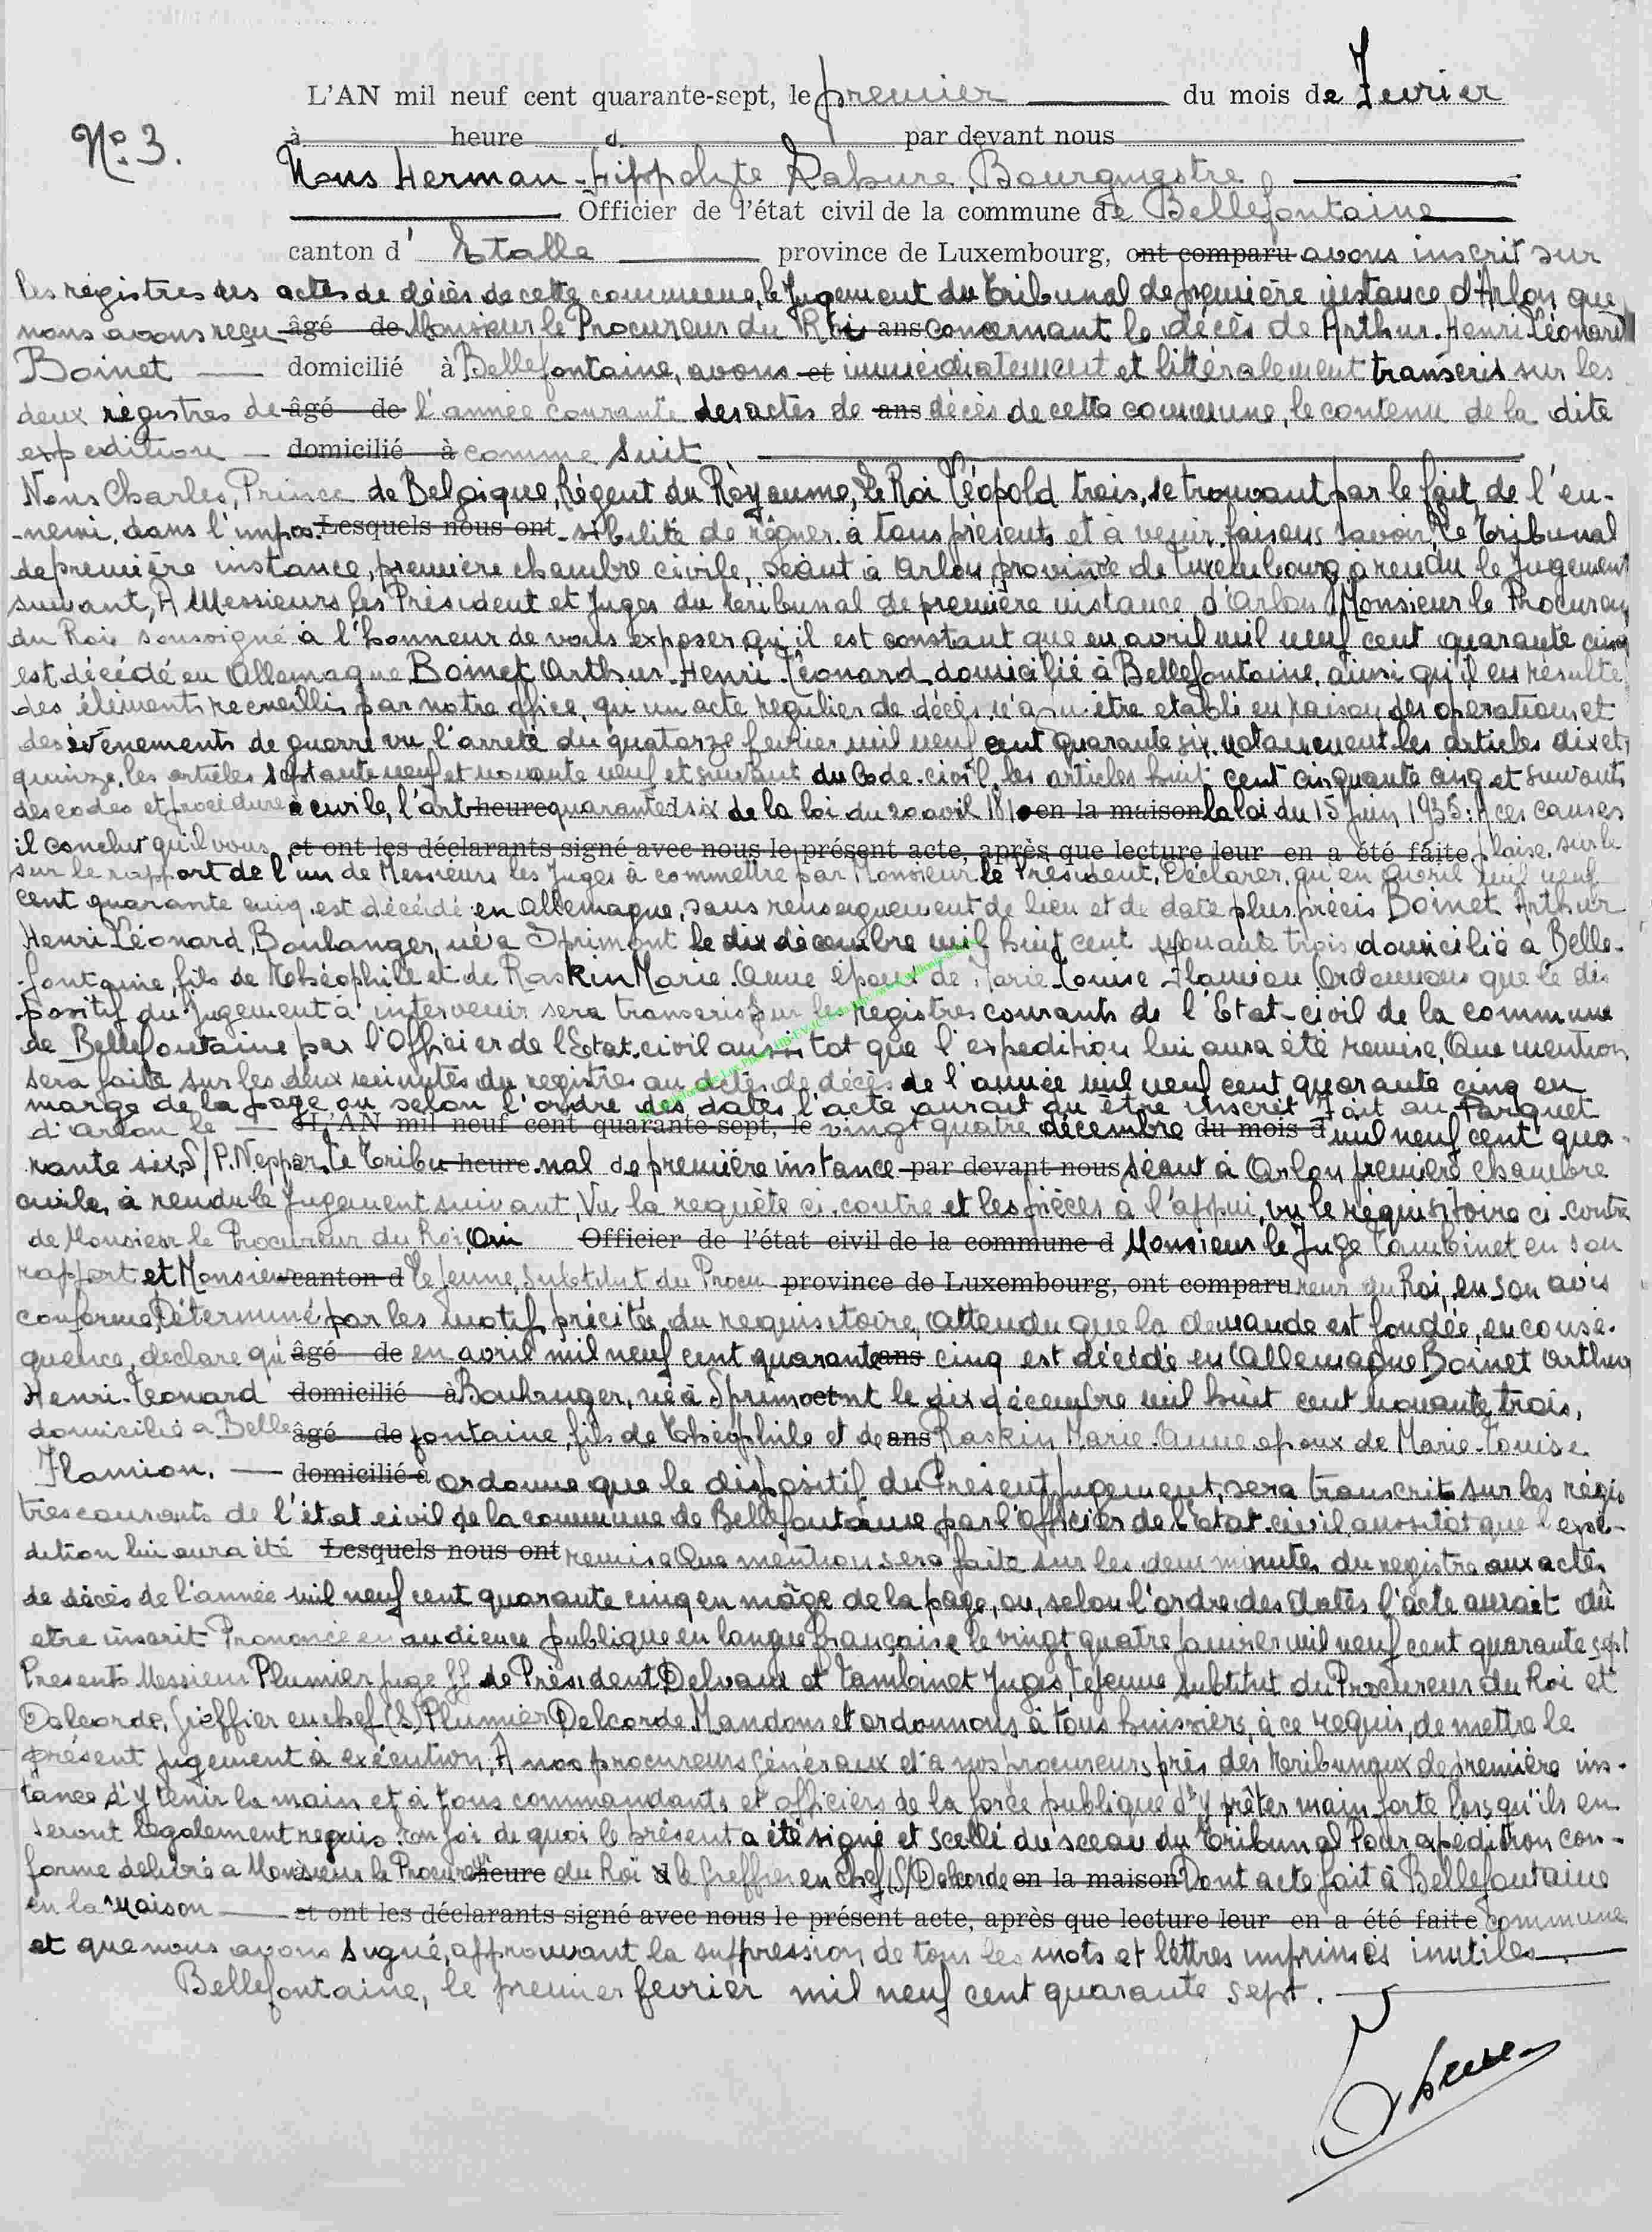 L'AN mil neuf cent quarante-sept, le premier du mois de Fevrier
N° 3. à heure d. par devant nous
Nous Herman-Hippolyte Labure, Bourgmestre
Officier de l'état civil de la commune de Bellefontaine
canton d'Etalle province de Luxembourg, ont comparu avons inscrit sur
les régistres des actes de décès de cette commune, le Jugement du tribunal de première instance d'Arlon que
nous avons reçu âgé de Monsieur le Procureur du Roi ans concernant le décès de Arthur-Henri-Léonard
Boinet domicilié à Bellefontaine, avons et immédiatement et littéralement transcrit sur les
deux régistres de âgé de l'année courante des actes de ans décès de cette commune, le contenu de la dite
expedition domicilié à comme suit
Nous Charles, Prince de Belgique, Régent du Royaume, Le Roi Léopold trois, se trouvant par le fait de l'en-
-nemi, dans l'impos- Lesquels nous ont -sibilité de régner, à tous présents et à venir faisons savoir, Le tribunal
de première instance, première chambre civile, séant à Arlon province de Luxembourg à rendu le Jugement
suivant, A Messieurs les Président et Juges du tribunal de première instance d'Arlon Monsieur le Procureur
du Roi soussigné à l'honneur de vous exposer qu'il est constant que en avril mil neuf cent quarante cinq
est décédé en Allemagne Boinet Arthur-Henri-Léonard domicilié à Bellefontaine, ainsi qu'il en résulte
des éléments recueillis par notre office, qu'un acte regulier de décès n'a pu être etabli en raison des operations et
des évenements de guerre vu l'arreté du quatorze fevrier mil neuf cent quarante six, notamment les articles dix et
quinze, les articles septante neuf et nonante neuf et suivant du Code civil, les articles huit cent cinquante cinq et suivants
des codes et procédure à civile, l'art heure quarante six de la loi du 20 avril 1810 en la maison la loi du 15 Juin 1935: A ces causes
il conclut qu'il vous et ont les déclarants signé avec nous le présent acte, après que lecture leur en a été faite plaise, sur le
sur le rapport de l'un de Messieurs les Juges à commettre par Monsieur le Président, Déclarer, qu'en avril mil neuf
cent quarante cinq, est décédé en Allemagne, sans renseignement de lieu et de date plus précis Boinet Arthur
Henri Léonard, Boulanger, né à Sprimont le dix décembre mil huit cent nonante trois domicilié à Belle-
-fontaine, fils de Théophile et de Raskin Marie-Anne époux de Marie-Louise Flamion Ordonnons que le dis
positif du Jugement à intervenir sera transcris sur les régistres courants de l'Etat-civil de la commune
de Bellefontaine par l'Officier de l'Etat-civil aussitot que l'expedition lui aura été remise, Que mention
sera faite sur les deux minutes du registres au actes de décès de l'année mil neuf cent quarante cinq en
marge de la page, ou selon l'ordre des dates l'acte aurait du être inscrit Fait au Parquet
d'Arlon le L'AN mil neuf cent quarante-sept, le vingt quatre décembre du mois d mil neuf cent qua-
rante six, S/P. Neppar, Le Tribu heure nal de première instance par devant nous séant à Arlon première chambre
civile, à rendu le Jugement suivant, Vu la requête ci-contre et les pièces à l'appui, vu le réquisitoire ci-contre
de Monsieur le Procureur du Roi, Oui Officier de l'état civil de la commune d Monsieur le Juge Tambinet en son
rapport et Monsieur canton d Lejeune, Substitut du Procu province de Luxembourg, ont comparu reur du Roi, en son avis
conforme, Déterminé par les motifs précités du requisitoire, Attendu que la demande est fondée, en consé-
quence, declare qu' âgé de en avril mil neuf cent quarante ans cinq est décédé en Allemagne Boinet Arthur
Henri-Leonard domicilié à Boulanger, né à Sprimo et nt le dix décembre mil huit cent nonante trois,
domicilié a Belle âgé de fontaine, fils de Théophile et de ans Raskin Marie-Anne epoux de Marie-Louise
Flamion. domicilié à ordonne que le dispositif du Présent Jugement, sera transcrits sur les régis
tres courants de l'état civil de la commune de Bellefontaine par l'officier de l'état-civil aussitot que l'expé-
dition lui aura été Lesquels nous ont remise Que mention sera faite sur les deux minutes du registre aux actes
de décès de l'année mil neuf cent quarante cinq en marge de la page, ou, selon l'ordre des dates l'acte aurait dû
etre inscrit Prononcé en audience publique en langue française le vingt quatre janvier mil neuf cent quarante sept
Présents Messieurs Plumier juge ff de Président Delvaux et Tambinet Juges, Lejeune Substitut du Procureur du Roi et
Delcorde, Greffier en chef (S) Plumier Delcorde. Mandons et ordonnons à tous huissiers, à ce requis, de mettre le
présent jugement à exécution; A nos procureurs Généraux et à nos procureurs près des tribunaux de première ins-
tance d'y tenir la main et à tous commandants et officiers de la force publique d'y prêter main forte lorsqu'ils en
seront légalement requis. En foi de quoi le présent a été signé et scellé du sceau du tribunal Pour expédition con-
forme délivré a Monsieur le Procure heure du Roi d le Greffier en Chef (S) Delcorde en la maison Dont acte fait à Bellefontaine
en la maison et ont les déclarants signé avec nous le présent acte, après que lecture leur en a été faite commune
et que nous avons signé, approuvant la suppression de tous les mots et lettres imprimés inutiles
Bellefontaine, le premier fevrier mil neuf cent quarante sept.